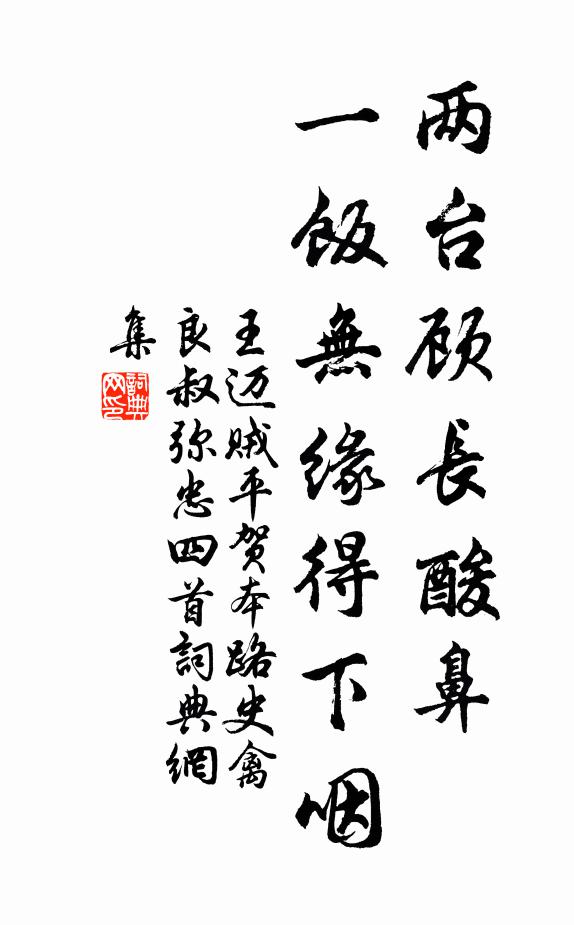 两台顾長酸鼻
一飯無緣得下咽
王迈贼平贺本路史禽
良叔弥忠四首詞典網
集
詞典
网印